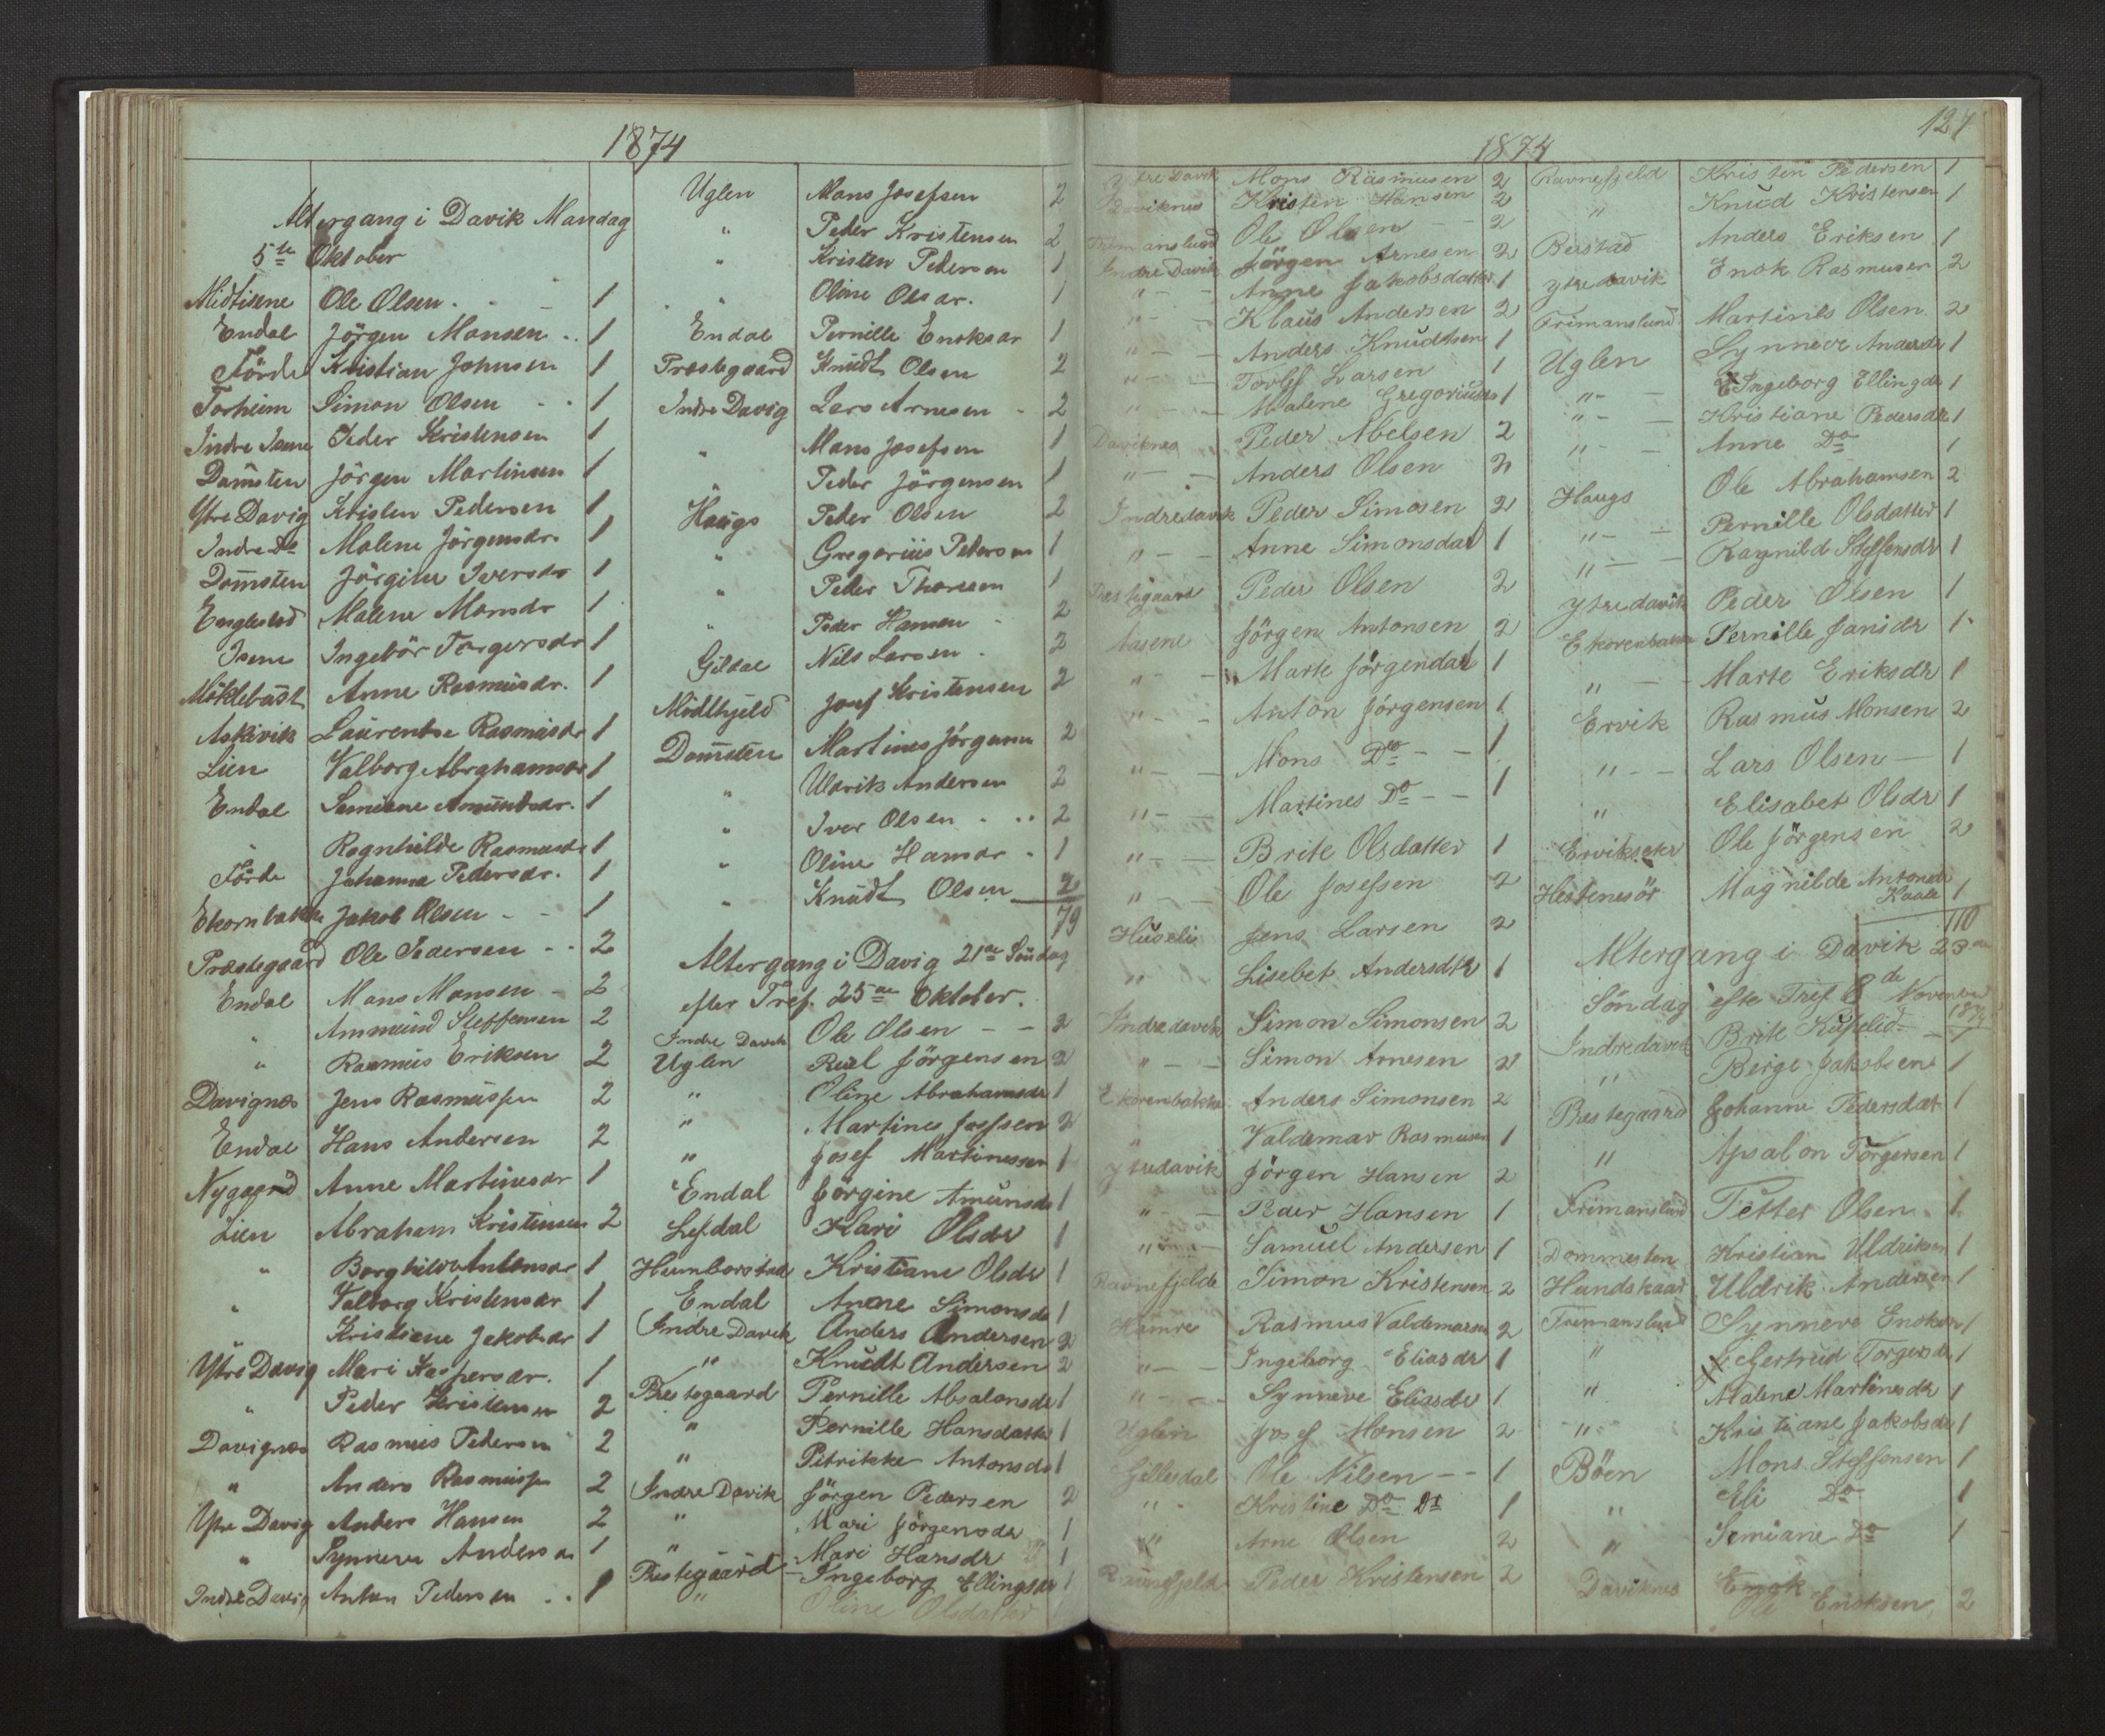 1874
Altergang i Davik Mandag
5te Oktober
Midtisene Ole Olsen - 1
Endal Jörgen Monsen .. 1
Förde Kristian Johnsen 1
Torheim Simon Olsen - - 1
Indre Isene Peder Kristensen 1
Domsten Jörgen Martinsen 1
Ytre Davig Kristen Pedersen 1
Indre Do Malene Jörgensdr. 1
Domsten Jörgine Iversdr 1
Englestad Malene Monsdr 1
Isene Ingebör Torgersdr 1
Möklebust Anne Rasmusdr. 1
Askivik Laurentse Rasmusdr 1
Lien Valborg Abrahamsdr 1
Endal Semiene Amundsdr. 1
" Ragnhilde Rasmusdr 1
Förde Johanna Pedersdr. 1
Ekornbakke Jakob Olsen - - 1
Præstegaard Ole Pedersen - - 2
Endal Mons Monsen - 2
" Ammund Steffensen 2
" Rasmus Eriksen 2
Davignæs Jens Rasmussen 2
Endal Hans Andersen 2
Nygaard Anne Martinesdr 1
Lien Abraham Kristensen 2
" Borghilde Antonsdr 1
" Valborg Kristensdr 1
" Kristiane Jakobsdr 1
Ytre Davig Mari Kaspersdr. 1
" Peder Kristensen 2
Davignæs Rasmus Pedersen 2
" Anders Rasmussen 2
Ytre Davig Anders Hansen 2
" Synneve Andersdr 1
Indre Davig Anton Pedersen . . 1
Uglen Mons Josefsen 2
" Peder Kristensen 2
" Kristen Pedersen 1
" Oline Olsdr. 1
Endal Pernille Enoksdr 1
Præstegaard Knudt Olsen 2
Indre Davig Lars Arnesen - 2
" Mons Josefsen 1
" Peder Jörgensen 1
Haugs Peder Olsen 2
" Gregorius Petersen 1
" Peder Thoresen 1
" Peder Hansen - 2
Gildal Nils Larsen . 2
Midthjeld Josef Kristensen 2
Domsten Martines Jörgensen 2
" Uldrik Andersen 2
" Iver Olsen . .. 2
" Oline Hansdr - 1
" Knudt Olsen 2
79
Altergang i Davig 21de Söndag
efter Tref. 25de Oktober.
Indre Davik Ole Olsen - - 2
Uglen Jörgensen 2
" Oline Abrahamsdr 1
" Martines Josefsen 2
" Josef Martinessen 1
Endal Jörgine Amunsdr 1
Lefdal Kari Olsdr 1
Humborstad Kristiane Olsdr 1
Endal Anne Simonsdr 1
Indre Davik Anders Andersen 2
" Knudt Andersen 2
Prestegaard Pernille Absalonsdr 1
" Pernille Hansdatter 1
" Petrikke Antonsdr 1
Indre Davik Jörgen Pedersen 2
" Mari Jörgensdr 1
" Mari Hansdr 1
Prestegaard Ingeborg Ellingsdr 1
" Oline Olsdatter
1874
Ytre Davik Mons Rasmusen 2
Daviknes Kristen Hansen 2
Frimanslund Ole Olsen - - 2
Indre Davik Jörgen Arnesen 2
" - - Anne Jakobsdatter 1
" - - Klaus Andersen 2
" - - Anders Knudtsen 1
" - - Torlef Larsen 1
" - - Malene Gregoriusdr 1
Daviknes Peder Abelsen 2
" - - Anders Olsen 2
Indredavik Peder Simosen 2
" - - Anne Simonsdat 1
Prestegaard Peder Olsen 2
Aasene Jörgen Antonsen 2
" - - Marte Jörgendat 1
" - - Anton Jörgensen 1
" - - Mons Do - - 1
" - - Martines Do - - 1
" - - Brite Olsdatter 1
" - - Ole Josefsen 2
Huseli Jens Larsen 2
" Lisebet Andersdtr 1
Indredavik Simon Simonsen 2
" - - Simon Arnesen 2
Ekorenbakke Anders Simonsen 2
" Valdemar Rasmusen 1
Ytredavik Jörgen Hansen 2
" - - Peder Hansen 1
" - - Samuel Andersen 1
Ravnefjelde Simon Kristensen 2
Hamre Rasmus Valdemarsen 2
" - - Ingeborg Eliasdr 1
" - - Synneve Eliasdr 1
Uglen Josef Monsen 2
Gillesdal Ole Nilsen - - 1
" - Kristine Do Dt 1
" Arne Olsen 2
Ravnefjeld Peder Kristensen 2
124
Ravnefjeld Kristen Pedersen 1
" Knud Kristensen 1
Berstad Anders Eriksen 1
Ytredavik Enok Rasmusen 2
Frimanslund Martines Olsen 2
Uglen Synneve Andersdr 1
" - - Ingeborg Ellingdr 1
" - - Kristiane Pedersdr 1
" - Anne Do 1
Haugs Ole Abrahamsen 2
" - - Pernille Olsdatter 1
" - - Ragnild Steffensdr 1
Ytredavik Peder Olsen 1
Ekorenbakke Pernille Jansdr 1
" - - Marte Eriksdr 1
Ervik Rasmus Monsen 2
" - - Lars Olsen - 1
" Elisabet Olsdr 1
Erviksetr Ole Jörgensen 2
Hestenesör Magnilde Antonsdr
1
110
Altergang i Davik 23de
Söndag efte Tref 8de November
1874
Indredavik Brite 1
" Berge Jakobsen 1
Prestegaard Johanne Pedersdat 1
" Apsalon Torgersen 1
Frimanslund Petter Olsen 1
Dommesten Kristian Uldriksen 1
Hundskaar Uldrik Andersen 1
Frimanslund Synneve Enoksdr 1
" Gertrud Torgersdr 1
" Malene Martinesdr 1
" Kristiane Jakobsdr 1
Böen Mons Steffensen 1
" Eli Do 1
" Semiane Do 1
Daviknes Enok
Ole Enoksen 2